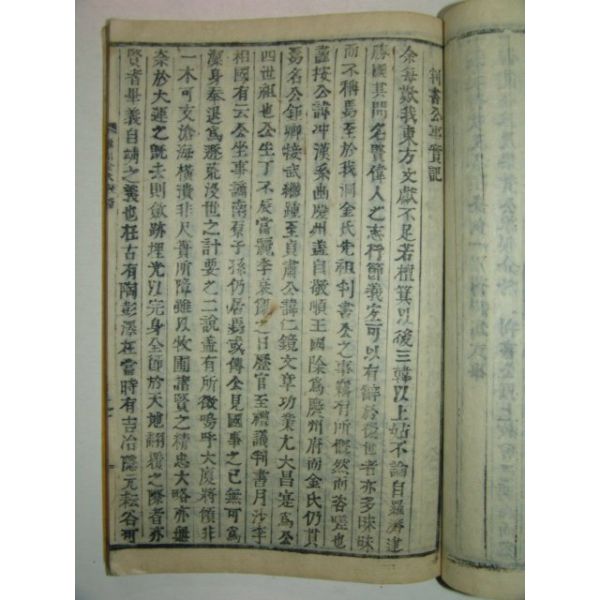 判書公事實記
余每歎我東方文獻不足若檀箕以後三韓以上姑不論自羅濟逮
勝國其間名賢偉人之志行節義可以有辭於後世者亦多昧昧
而不稱焉至於我洞金氏先祖判書公之事竊有所慨然而咨嗟也
謹按公諱冲漢系曲慶州盖自敬順王國除爲慶州府而金氏仍貫
焉名公鉅卿接武繼踵至貞肅公諱仁鏡文章功業尤大昌寔爲公
四世祖也公生丁不辰當麗季葉衰之日歷官至禮議判書月沙李
相國有云公坐事謫南有子孫仍居焉或傳公見國事之已無可爲
潔身奉退爲遯荒沒世之計要之二說盖有所微嗚呼大廈將傾非
一木可支滄海橫潰非尺膏所障雖以牧圃諸賢之精忠大略亦無
奈於大運之旣去則斂跡埋光以完身全節於天地飜覆之際者亦
賢者畢義自靖之義也在古有陶彭澤在當時有吉冶隱元耘谷可